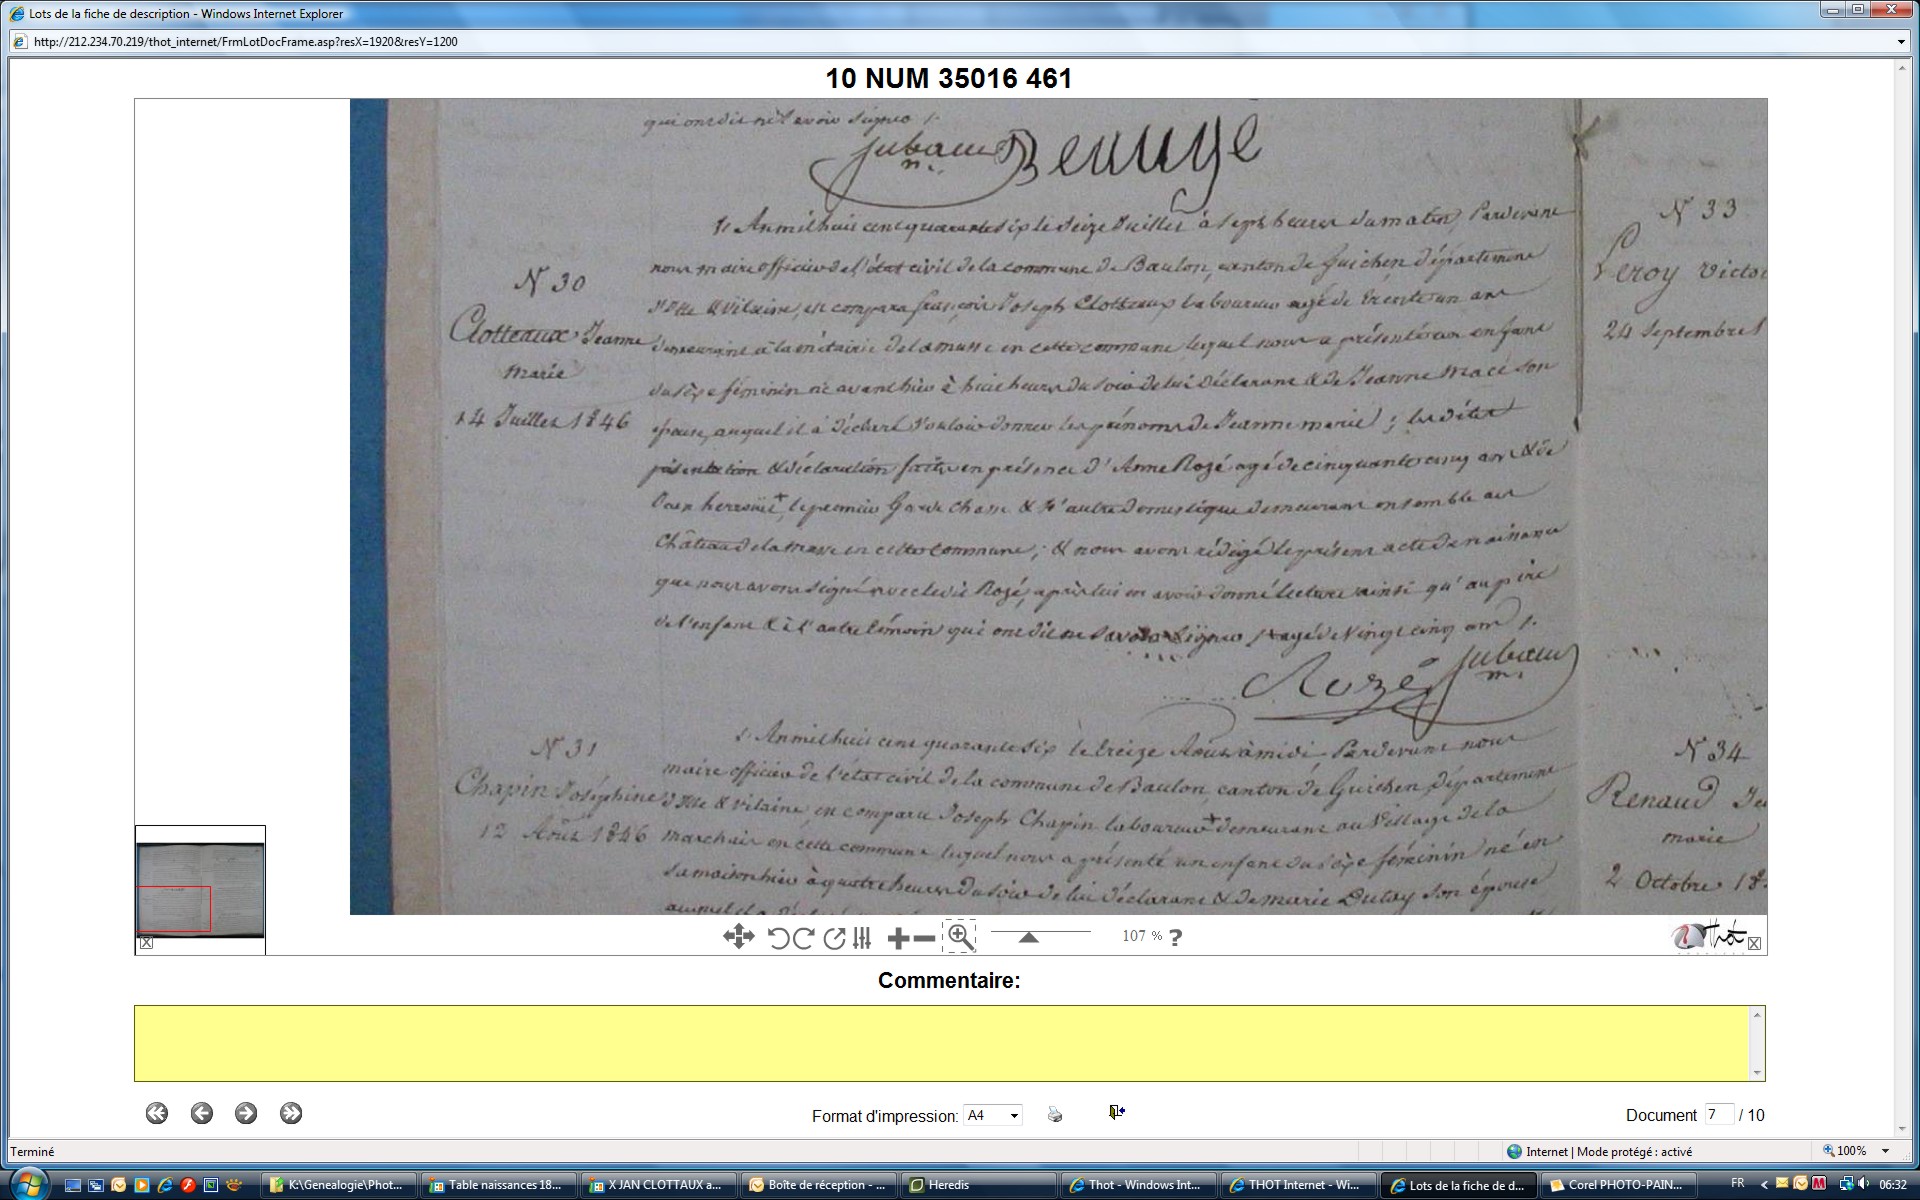 Lots de la fiche de description - Windows Internet Explorer
http://212.234.70.219/thot_internet/FrmLotDocFrame.asp?resX=1920&resY=1200
10 NUM 35016 461
qui ont dit ne savoir signer /.
Jubault
m.
N 30
Clotteaux Jeanne
marie
14 Juillet 1846
L'An mil huit cent quarante six le seize Juillet à sept heures du matin, Pardevant
nous maire officier de l'état civil de la commune de Baulon, canton de Guichen département
d'Ille & Vilaine, est comparu françois Joseph Clotteaux laboureur agé de trente un ans
demeurant à la métairie de la musse en cette commune lequel nous a présenté un enfant
du sexe féminin né avant hier à huit heures du soir de lui déclarant & de Jeanne Macé son
épouse, auquel il a déclaré vouloir donner les prénoms de Jeanne marie ; les dites
présentation & déclaration faites en présence d'Anne Rozé agé de cinquante cinq ans & de
le premier Garde chasse & l'autre domestique demeurant ensemble au
Château de la musse en cette commune ; & nous avons rédigé le présent acte de naissance
que nous avons signé avec le dit Rozé, après lui en avoir donné lecture ainsi qu'au père
de l'enfant & à l'autre témoin qui ont dit ne savoir signer /. + agé de vingt cinq ans /.
Rozé Jubault
m.
N 31
Chapin Joséphine
12 Août 1846
L'An mil huit cent quarante six le treize Août à midi, Pardevant nous
maire officier de l'état civil de la commune de Baulon, canton de Guichen, département
d'Ille & Vilaine, est comparu Joseph Chapin laboureur + demeurant au village de la
marchais en cette commune lequel nous a présenté un enfant du sexe féminin né en
sa maison hier à quatre heures du soir de lui déclarant & de marie Dutay son épouse
N 33
Leroy Victo
24 Septembre 1
N 34
Renaud Je
marie
2 Octobre 18
107 % ?
Thot
Commentaire:
Format d'impression: A4
Document 7 / 10
Terminé
Internet | Mode protégé : activé
100%
K:\Genealogie\Phot...
Table naissances 18...
X JAN CLOTTAUX a...
Boîte de réception - ...
Heredis
Thot - Windows Int...
THOT Internet - Wi...
Lots de la fiche de d...
Corel PHOTO-PAIN...
FR
06:32